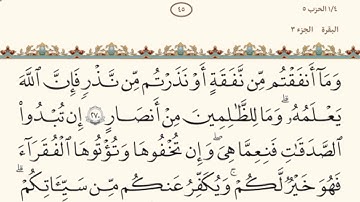 ١/٤ الحزب ٥
٤٥
البقرة الجزء ٣
وَمَآ أَنفَقْتُم مِّن نَّفَقَةٍ أَوْ نَذَرْتُم مِّن نَّذْرٍ فَإِنَّ ٱللَّهَ
يَعْلَمُهُۥ ۗ وَمَا لِلظَّٰلِمِينَ مِنْ أَنصَارٍ ٢٧٠ إِن تُبْدُوا۟
ٱلصَّدَقَٰتِ فَنِعِمَّا هِىَ ۖ وَإِن تُخْفُوهَا وَتُؤْتُوهَا ٱلْفُقَرَآءَ
فَهُوَ خَيْرٌ لَّكُمْ ۚ وَيُكَفِّرُ عَنكُم مِّن سَيِّـَٔاتِكُمْ ۗ